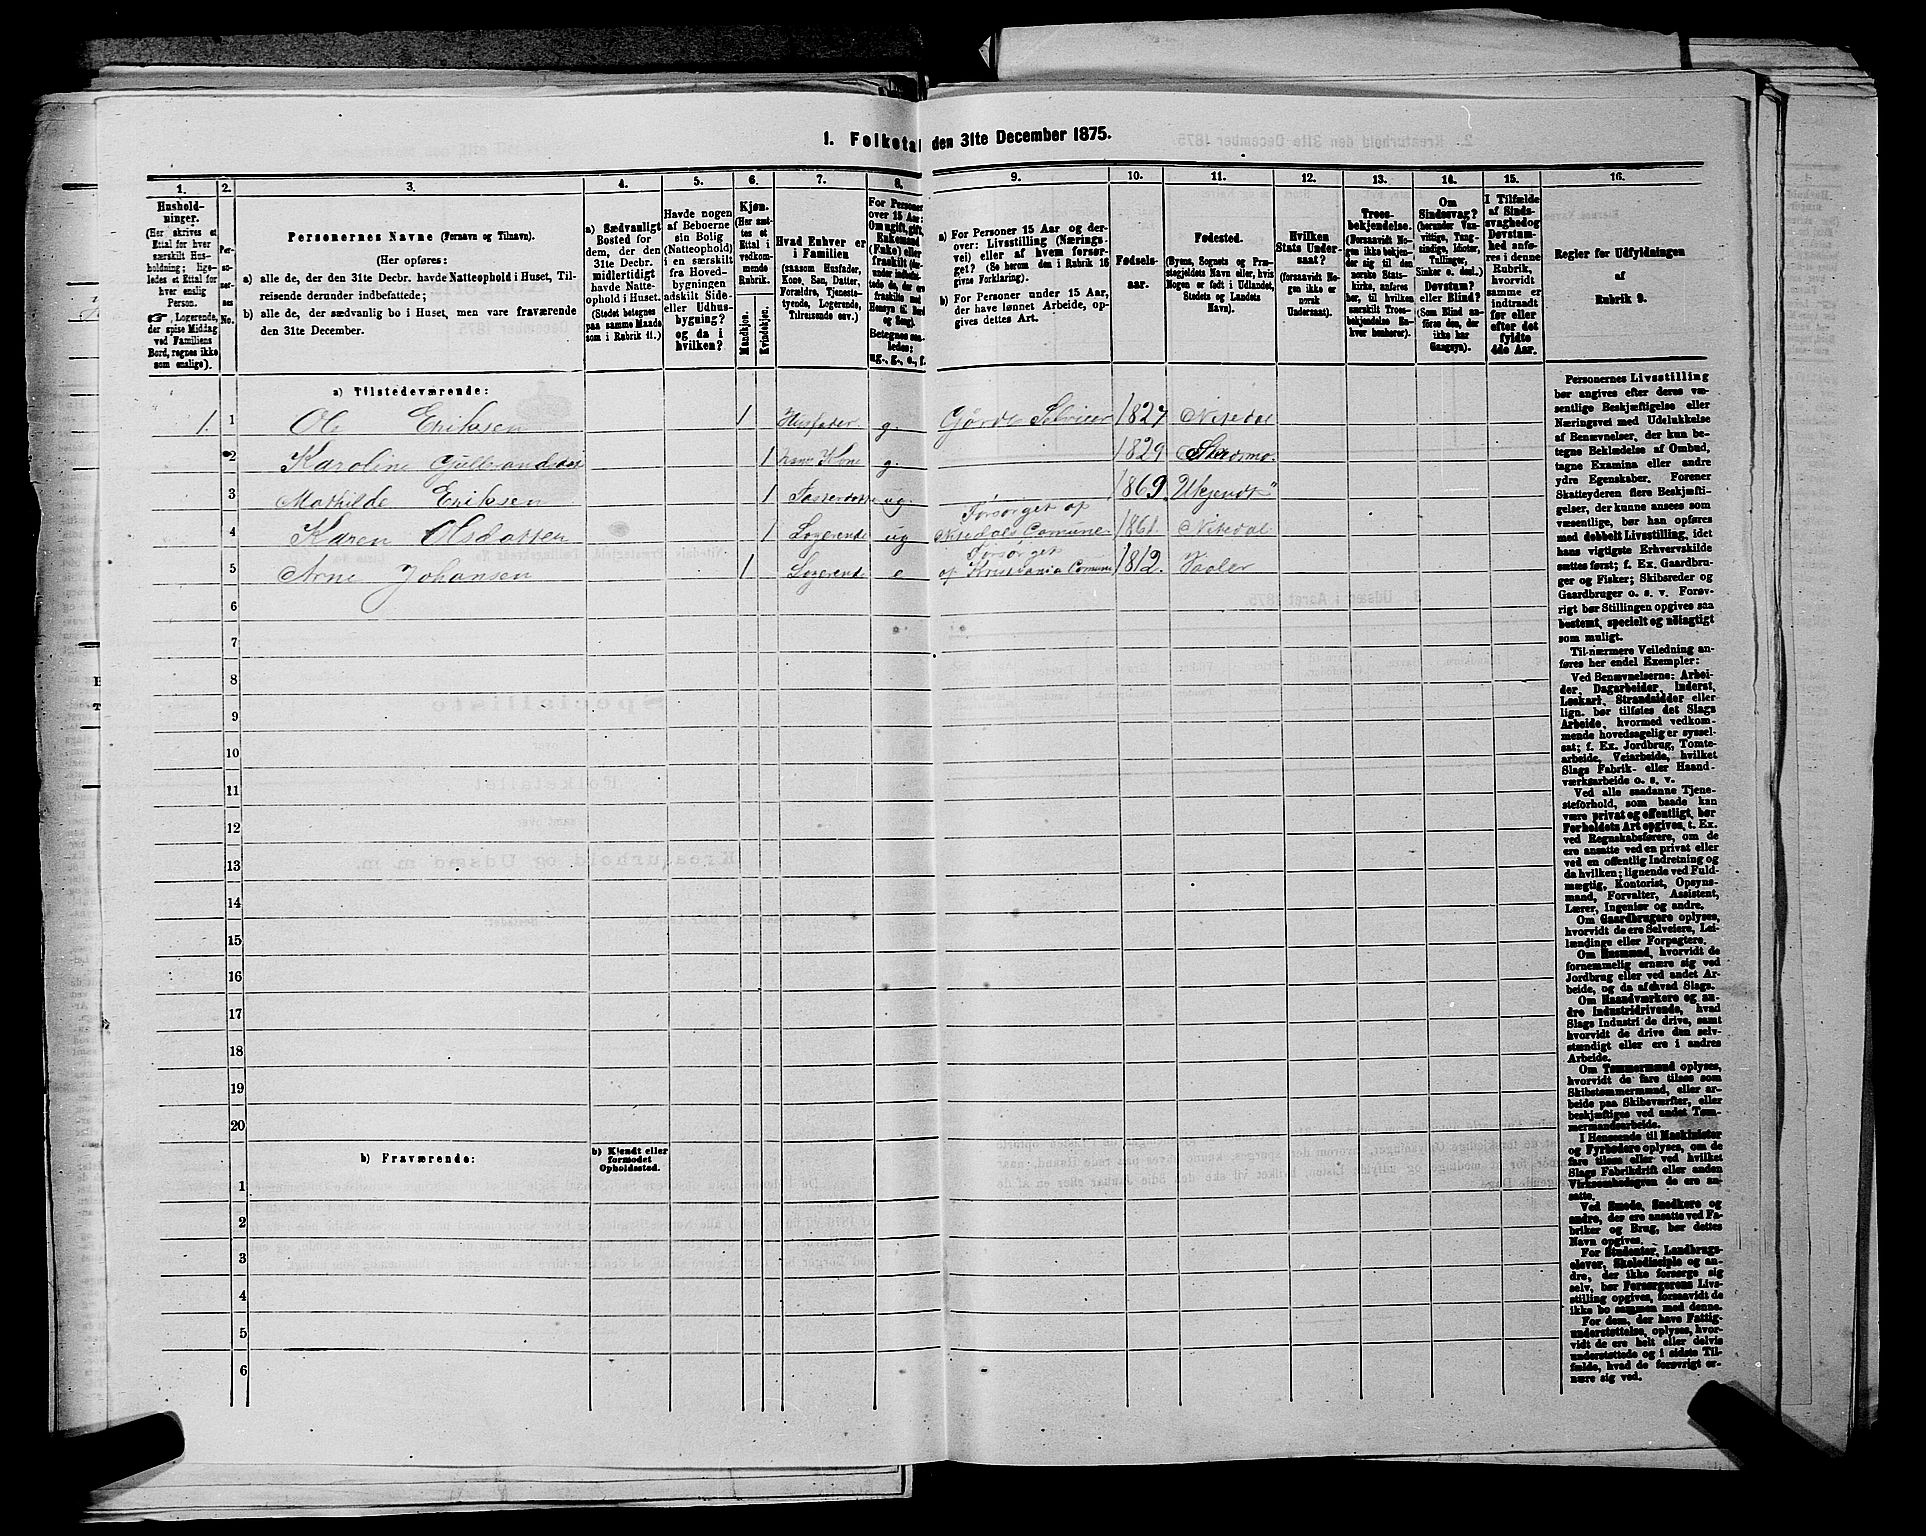 1. Folketal den 31te December 1875.
1. 2. 3. 4. 5. 6. 7. 8. 9. 10. 11. 12. 13. 14. 15. 16.
Hushold-
ninger.
(Her skrives et
Ettal for hver
særskilt Hus-
holdning; lige-
ledes et Ettal for
hver enslig
Person.
Logerende,
der spise Middag
ved Familiens
Bord, regnes ikke
som enslige).
Per-
so-
ner-
nes
No.
Personernes Navne (Fornavn og Tilnavn).
(Her opføres:
a) alle de, der den 31te Decbr. havde Natteophold i Huset, Til-
reisende derunder indbefattede;
b) alle de, der sædvanlig bo i Huset, men vare fraværende
den 31te December.
a) Sædvanligt
Bosted for
dem, der den
31te Decbr.
midlertidigt
havde Natte-
ophold i Huset.
(Stedet betegnes
paa samme Maade
som i Rubrik 11.)
Havde nogen
af Beboerne
sin Bolig
(Natteophold)
i en særskilt
fra Hoved-
bygningen
adskilt Side-
eller Udhus-
bygning?
og da i
hvilken?
Kjøn.
(Her sæt-
tes et
Ettal i
vedkom-
mende
Rubrik.
Mandkjøn.
Kvindekjøn.
Hvad Enhver er
i Familien
(saasom Husfader,
Kone, Søn, Datter,
Forældre, Tjeneste-
tyende, Logerende,
Tilreisende osv.)
For Personer
over 15 Aar:
Om ugift, gift,
Enkemand
(Enke) eller
fraskilt
Betegnes saa-
ledes:
ug., g., e., f.
a) For Personer 15 Aar og der-
over: Livsstilling (Nærings-
vei) eller af hvem forsør-
get? (Se herom den i Rubrik 16
givne Forklaring).
b) For Personer under 15 Aar,
der have lønnet Arbeide, op-
gives dettes Art.
Fødsels-
aar.
Fødested.
(Byens, Sognets og Præ-
stegjeldets Navn eller, hvis
Nogen er født i Udlandet,
Stedets og Landets
Navn).
Hvilken
Stats Under-
saat?
(forsaavidt No-
gen ikke er
norsk
Undersaat).
Troes-
bekjendelse.
(Forsaavidt No-
gen ikke bekjen-
der sig til den
norske Stats-
kirke, anføres
her, til hvilken
særskilt Troes-
bekjendelse En-
hver henhører).
Om
Sindssvag?
(herunder Van-
vittige, Tung-
sindige, Idioter,
Tullinger,
Sinker o. desl.)
Døvstum?
eller Blind?
(Som Blind an-
føres den, der
ikke har
Gangsyn).
I Tilfælde
af Sinds-
svaghed og
Døvstum-
hed anfø-
res i denne
Rubrik,
hvorvidt
samme er
indtraadt
før eller
efter det
fyldte
4de Aar.
Regler for Udfyldningen
af
Rubrik 9.
a) Tilstedeværende:
1. 1 Ole Eriksen 1 Husfader g. 1827 Nitedal
2 Karoline 1 Hans Kone g. 1829
3 Mathilde Eriksen 1 ug. 1869. Ukjendt"
Forsørget af
4 Karen Olsdatter 1 Logerende ug Nitedals Comune 1861. Nitedal
Forsørget
5 Arne Johansen 1 Logerende e af Kristiania Comune 1812. Vaaler
6
7
8
9
10
11
12
13
14
15
16
17
18
19
20
b) Fraværende:
b) Kjendt eller
formodet
Opholdssted.
1
2
3
4
5
6
Personernes Livsstilling
bør angives efter deres væ-
sentlige Beskjæftigelse eller
Næringsvei med Udelukkelse
af Benævnelser, der kun be-
tegne Beklædelse af Ombud,
tagne Examina eller andre
ydre Egenskaber. Forener
Skatteyderen flere Beskjæfti-
gelser, der kunne ansees som
væsentlige, bør han opføres
med dobbelt Livsstilling, idet
hans vigtigste Erhvervskilde
sættes først; f. Ex. Gaardbru-
ger og Fisker; Skibsreder og
Gaardbruger o. s. v. Forøv-
rigt bør Stillingen opgives saa
bestemt, specielt og nøiagtigt
som muligt.
Til nærmere Veiledning an-
føres her endel Exempler:
Ved Benævnelserne: Arbei-
der, Dagarbeider, Inderst,
Løskarl, Strandsidder eller
lign. bør tilføies det Slags
Arbeide, hvormed vedkom-
mende hovedsagelig er syssel-
sat; f. Ex. Jordbrug, Tomte-
arbeide, Veiarbeide, hvilket
Slags Fabrik- eller Haand-
værksarbeide o. s. v.
Ved alle saadanne Tjene-
steforhold, som baade kan
være privat og offentligt, bør
Forholdets Art opgives, t. Ex.
ved Regnskabsførere, om de
ere ansatte ved en privat eller
ved en offentlig Indretning og
da hvilken; lignende ved Fuld-
mægtig, Kontorist, Opsyns-
mand, Forvalter, Assistent,
Lærer, Ingeniør og andre.
Om Gaardbrugere oplyses,
hvorvidt de ere Selveiere, Lei-
lændinge eller Forpagtere.
Om Husmænd, hvorvidt de
fornemmelig ernære sig ved
Jordbrug eller ved andet Ar-
beide, og da af hvad Slags.
Om Haandværkere og an-
dre Industridrivende, hvad
Slags Industri de drive, samt
hvorvidt de drive den selv-
stændigt eller ere i andres
Arbeide.
Om Tømmermænd oplyses,
hvorvidt de fare tilsøs som
Skibstømmermænd, eller ar-
beide paa Skibsværfter, eller
beskjæftiges ved andet Tøm-
mermandsarbeide.
I Henseende til Maskinister
og Fyrbødere oplyses, om de
fare tilsøs eller ved hvilket
Slags Fabrikdrift eller anden
Virksomhed de ere an-
satte.
Ved Smede, Snedkere og
andre, der ere ansatte ved Fa-
briker og Brug, bør dettes
Navn opgives.
For Studenter, Landbrugs-
elever, Skoledisciple og an-
dre, der ikke forsørge sig
selv, bør Forsørgerens Livs-
stilling opgives, forsaavidt de
ikke bo sammen med denne.
For dem, der have Fattig-
understøttelse, oplyses, hvor-
vidt de ere helt eller delvis
understøttede og i sidste Til-
fælde, hvad de forøvrigt er-
nære sig ved.